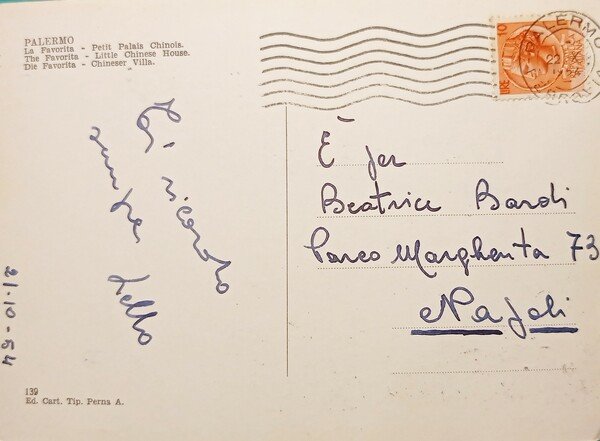 PALERMO
La Favorita - Petit Palais Chinois.
The Favorita - Little Chinese House.
Die Favorita - Chineser Villa.
PALERMO
22
È per
Beatrice Bardi
Parco Margherita 73
Napoli
Ti ricordo
sempre
Lello
21-10-54
139
Ed. Cart. Tip. Perna A.